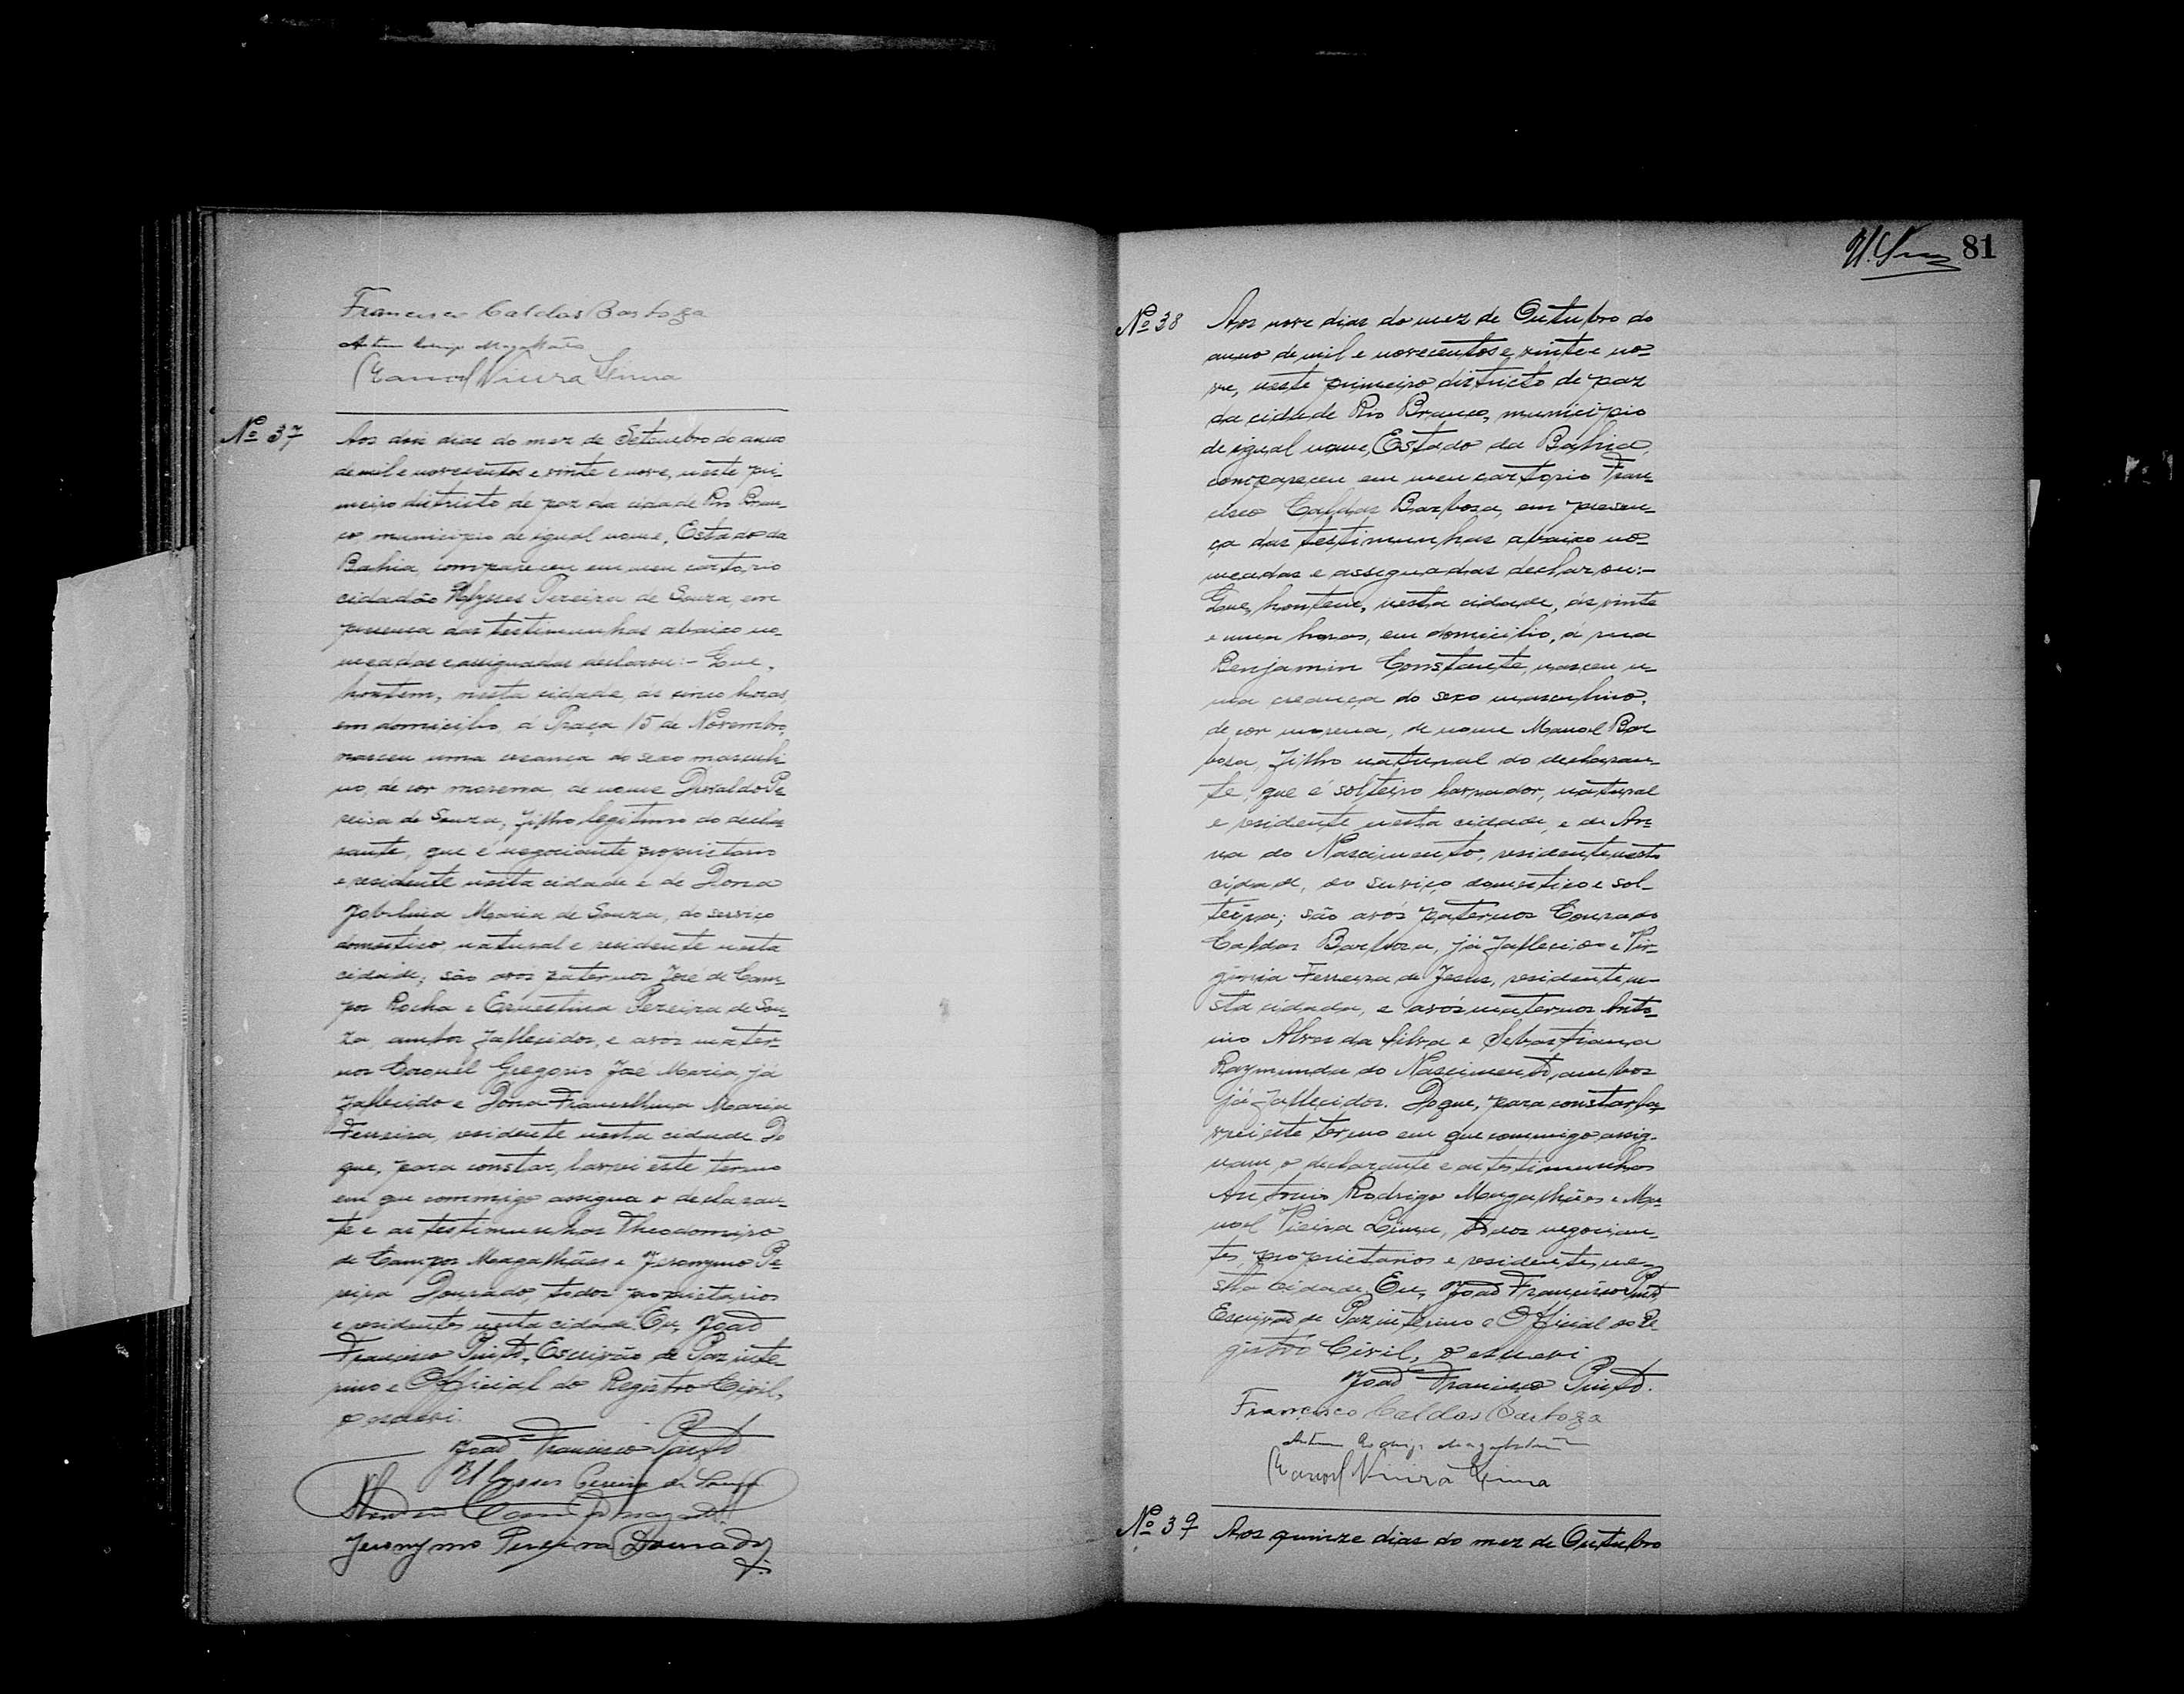 Francisco Caldas Barboza
Manoel Vieira Lima
Nº 37
Aos dois dias do mez de Setembro do anno
de mil e novecentos e vinte e nove, neste pri-
meiro districto de paz da cidade Rio Bran-
co municipio de igual nome, Estado da
Bahia, compareceu em meu cartorio
cidadão Ulysses Pereira de Souza, em
presença das testimunhas abaixo no-
meadas e assignadas declarou:- Que,
hontem, nesta cidade, ás cinco horas,
em domicilio, á Praça 15 de Novembro,
nasceu uma creança do sexo masculi-
no, de cor morena, de nome Divaldo Pe
reira de Souza, filho legitimo do decla-
rante, que é negociante proprietario
e residente nesta cidade e de Dona
Maria de Souza, do serviço
domestico, natural e residente nesta
cidade; são avós paternos José de Cam-
pos Rocha e Ernestina Pereira de Sou-
za, ambos fallecidos, e avós mater-
nos Coronel Gregorio José Maria, já
fallecido e Dona Maria
Ferreira, residente nesta cidade. Do
que, para constar, lavrei este termo
em que commigo assigna o declaran-
te e as testimunhas Theodomiro
de Campos Magalhães e Jeronymo Pe-
reira Dourado, todos proprietarios
e residentes nesta cidade. Eu, João
Francisco Pinto, Escrivão de Paz inte-
rino e Official do Registro Civil,
o escrevi.
João Francisco Pinto
Ulysses Pereira de Souza
Jeronymo Pereira Dourado
81
Nº 38
Aos nove dias do mez de Outubro do
anno de mil e novecentos e vinte e no-
ve, neste primeiro districto de paz
da cidade Rio Branco, municipio
de igual nome, Estado da Bahia,
compareceu em meu cartorio Fran-
cisco Caldas Barbosa, em presen-
ça das testimunhas abaixo no-
meadas e assignadas declarou:-
Que, hontem, nesta cidade, ás vinte
e uma horas, em domicilio, á rua
Benjamin Constante, nasceu u-
ma creança do sexo masculino,
de cor morena, de nome Manoel Bar
bosa, filho natural do declaran-
te, que é solteiro lavrador, natural
e residente nesta cidade, e de An-
na do Nascimento, residente nesta
cidade, do serviço domestico e sol-
teira; são avós paternos Conrado
Caldas Barbosa, já fallecido e Vir-
ginia Ferreira de Jesus, residente ne-
sta cidade, e avós maternos Anto-
nio Alves da Silva e Sebastiana
Raymunda do Nascimento, ambos
já fallecidos. Do que, para constar, la-
vrei este termo em que commigo assig-
nam o declarante e as testimunhas
Antonio Rodrigo Magalhães e Ma-
noel Vieira Lima, todos negocian-
tes, proprietarios e residentes ne-
sta cidade. Eu, João Francisco Pinto,
Escrivão de Paz interino e Official do Re-
gistro Civil, o escrevi
João Francisco Pinto.
Francisco Caldas Barboza
Manoel Vieira Lima
Nº 39
Aos quinze dias do mez de Outubro